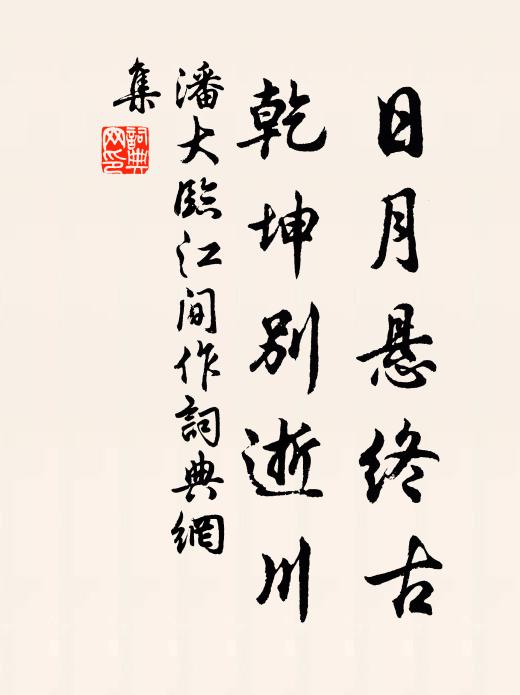 日月悬终古
乾坤别逝川
潘大臨江间作詞典網
集
詞典
网印